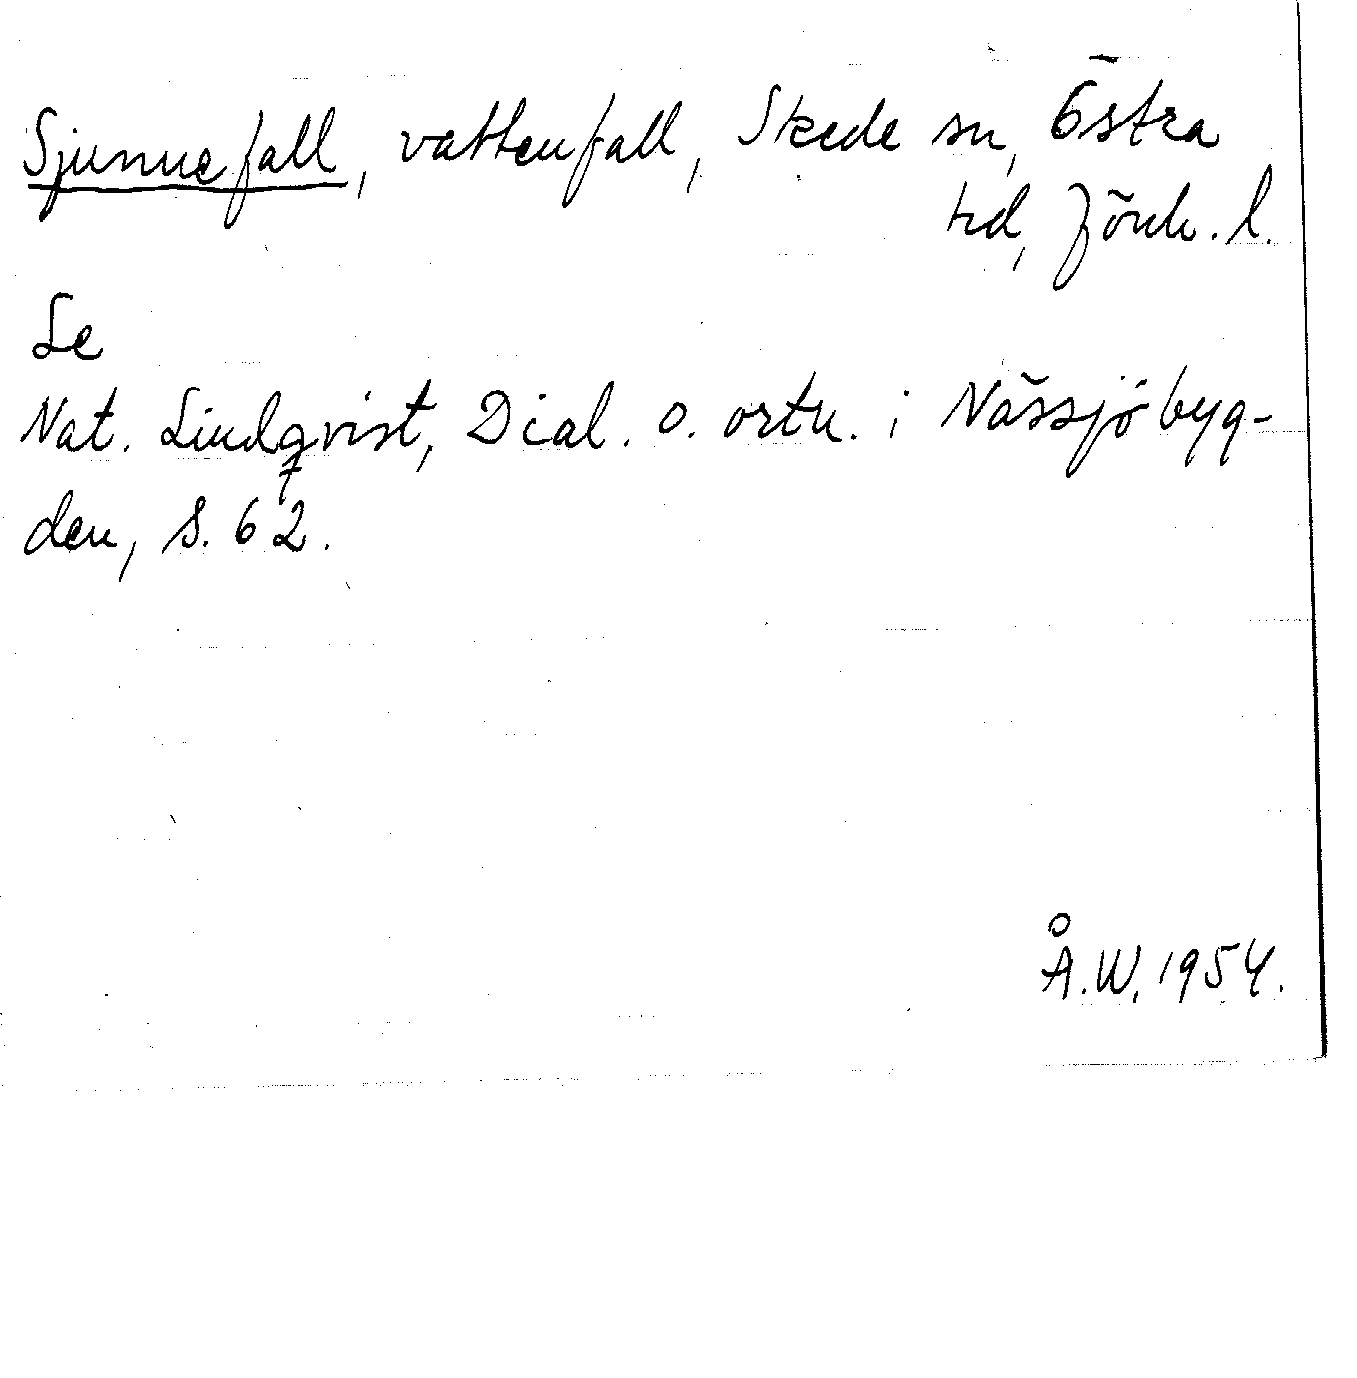 Sjunnefall, vattenfall, Skede sn, Östra
hd, Jönk. l.
Se
Nat. Lindqvist, Dial. o. ortn. i Nässjöbyg-
den, s. 62.
Å.W. 1954.